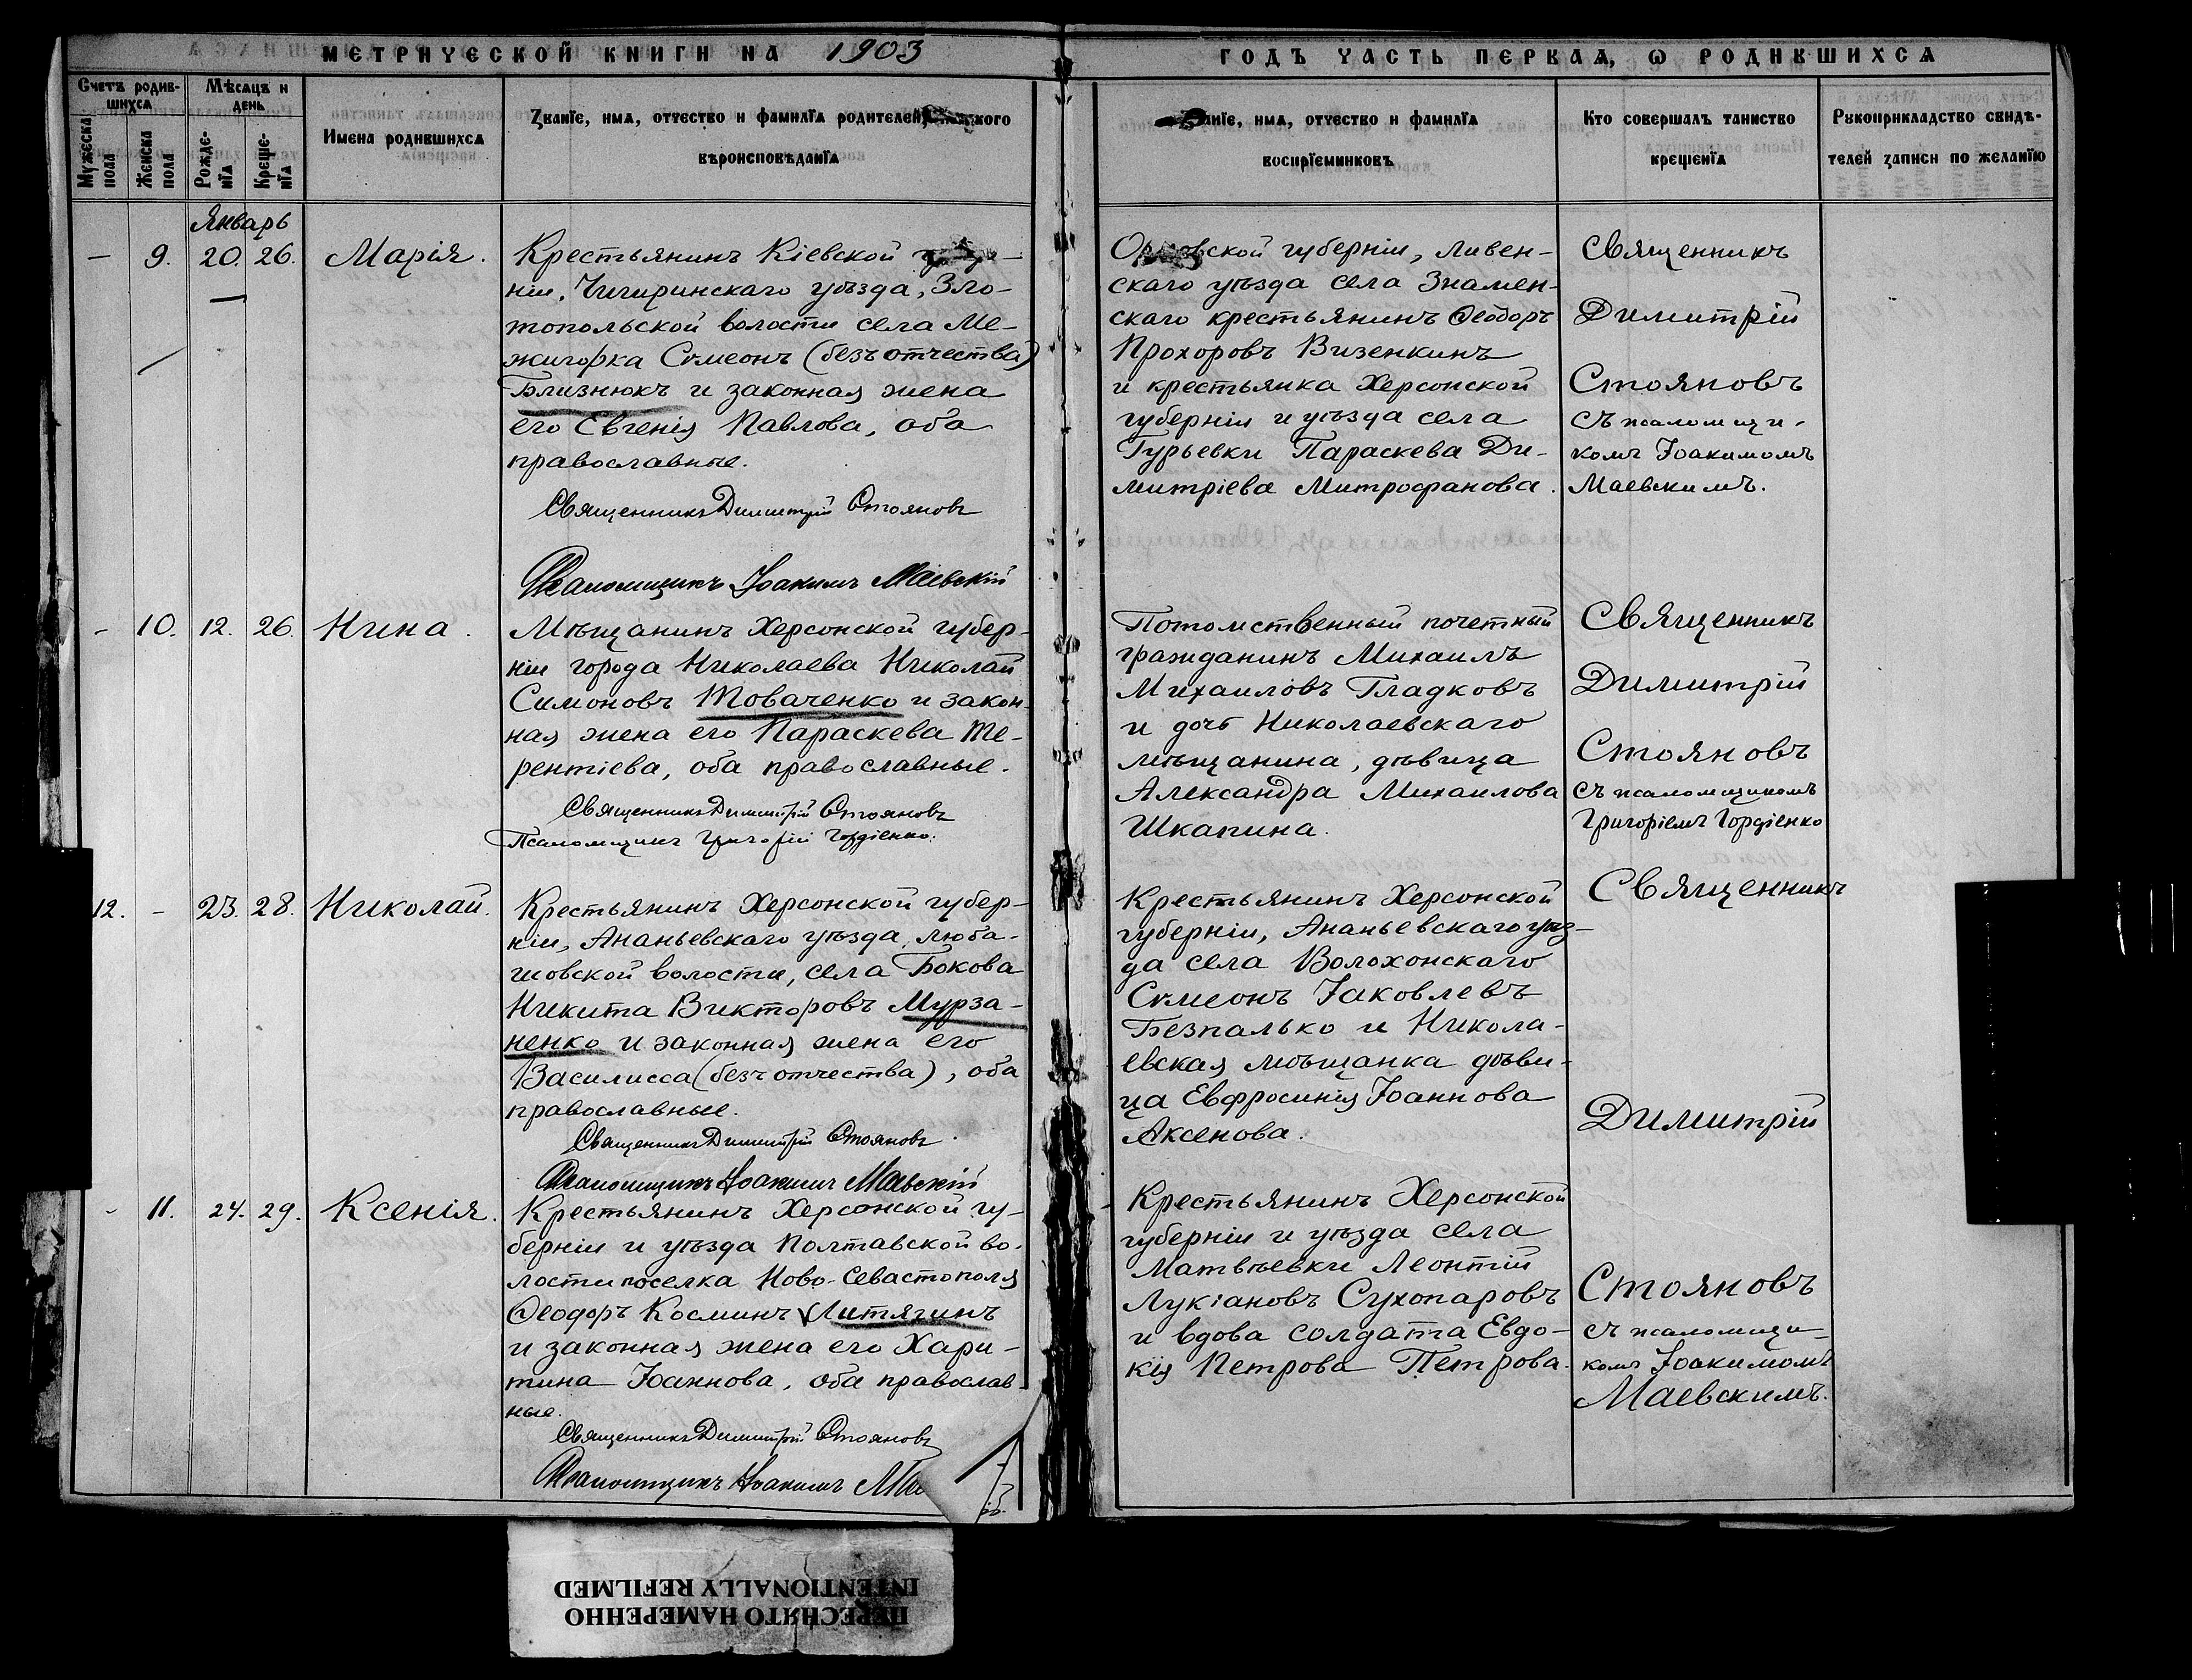 МЕТРИЧЕСКОЙ КНИГИ НА 1903
ГОДЪ ЧАСТЬ ПЕРВАЯ, Ѡ РОДИВШИХСЯ
Счетъ родив-
шихся
Мѣсяцъ и
день
Мужеска
пола
Женска
пола
Рожде-
нїя
Креще-
нїя
Имена родившихся
Званїе, имя, отчество и фамилїя родителей,
вѣроисповѣданїя
имя, отчество и фамилїя
воспрїемниковъ
Кто совершалъ таинство
крещенїя
Рукоприкладство свидѣ-
телей записи по желанїю
Январь
— 9. 20. 26. Марія.
Крестьянинъ Кіевской губер-
ніи, Чигиринскаго уѣзда, Зло-
топольской волости села Ме-
жигорка Сѵмеонъ (безъ отчества)
Близнюкъ и законная жена
его Евгенія Павлова, оба
православные.
Священникъ Димитрій Стояновъ
Псаломщикъ Іоакимъ Маевскій
Орловской губерніи, Ливен-
скаго уѣзда села Знамен-
скаго крестьянинъ Ѳеодоръ
Прохоровъ Визенкинъ
и крестьянка Херсонской
губерніи и уѣзда села
Гурьевки Параскева Ди-
митріева Митрофанова.
Священникъ
Димитрій
Стояновъ
съ псаломщи-
комъ Іоакимомъ
Маевскимъ.
- 10. 12. 26. Нина.
Мѣщанинъ Херсонской губер-
ніи города Николаева Николай
Симоновъ Товаченко и закон-
ная жена его Параскева Те-
рентіева, оба православные.
Священникъ Димитрій Стояновъ
Псаломщикъ Григорій Гордіенко.
Потомственный почетный
гражданинъ Михаилъ
Михаиловъ Гладковъ
и дочь Николаевскаго
мѣщанина, дѣвица
Александра Михаилова
Шкапина.
Священникъ
Димитрій
Стояновъ
съ псаломщикомъ
Григоріемъ Гордіенко
12. - 23. 28. Николай.
Крестьянинъ Херсонской губер-
ніи, Ананьевскаго уѣзда, Люба-
шовской волости, села Бокова
Никита Викторовъ Мурза-
ненко и законная жена его
Василисса (безъ отчества), оба
православные.
Священникъ Димитрій Стояновъ
Псаломщикъ Іоакимъ Маевскій
Крестьянинъ Херсонской
губерніи, Ананьевскаго уѣз-
да села Волохонскаго
Сѵмеонъ Іаковлевъ
Безпалько и Никола-
евская мѣщанка дѣви-
ца Евфросинія Іоаннова
Аксенова.
Священникъ
Димитрій
- 11. 24. 29. Ксенія.
Крестьянинъ Херсонской гу-
берніи и уѣзда Полтавской во-
лости поселка Ново-Севастополя
Ѳеодоръ Косминъ Литягинъ
и законная жена его Хари-
тина Іоаннова, оба православ-
ные.
Священникъ Димитрій Стояновъ
Псаломщикъ Іоакимъ Ма
Крестьянинъ Херсонской
губерніи и уѣзда села
Матвѣевки Леонтій
Лукіановъ Сухопаровъ
и вдова солдата Евдо-
кія Петрова Петрова.
Стояновъ
съ псаломщи-
комъ Іоакимомъ
Маевскимъ.
ПЕРЕСНЯТО НАМЕРЕННО
INTENTIONALLY REFILMED